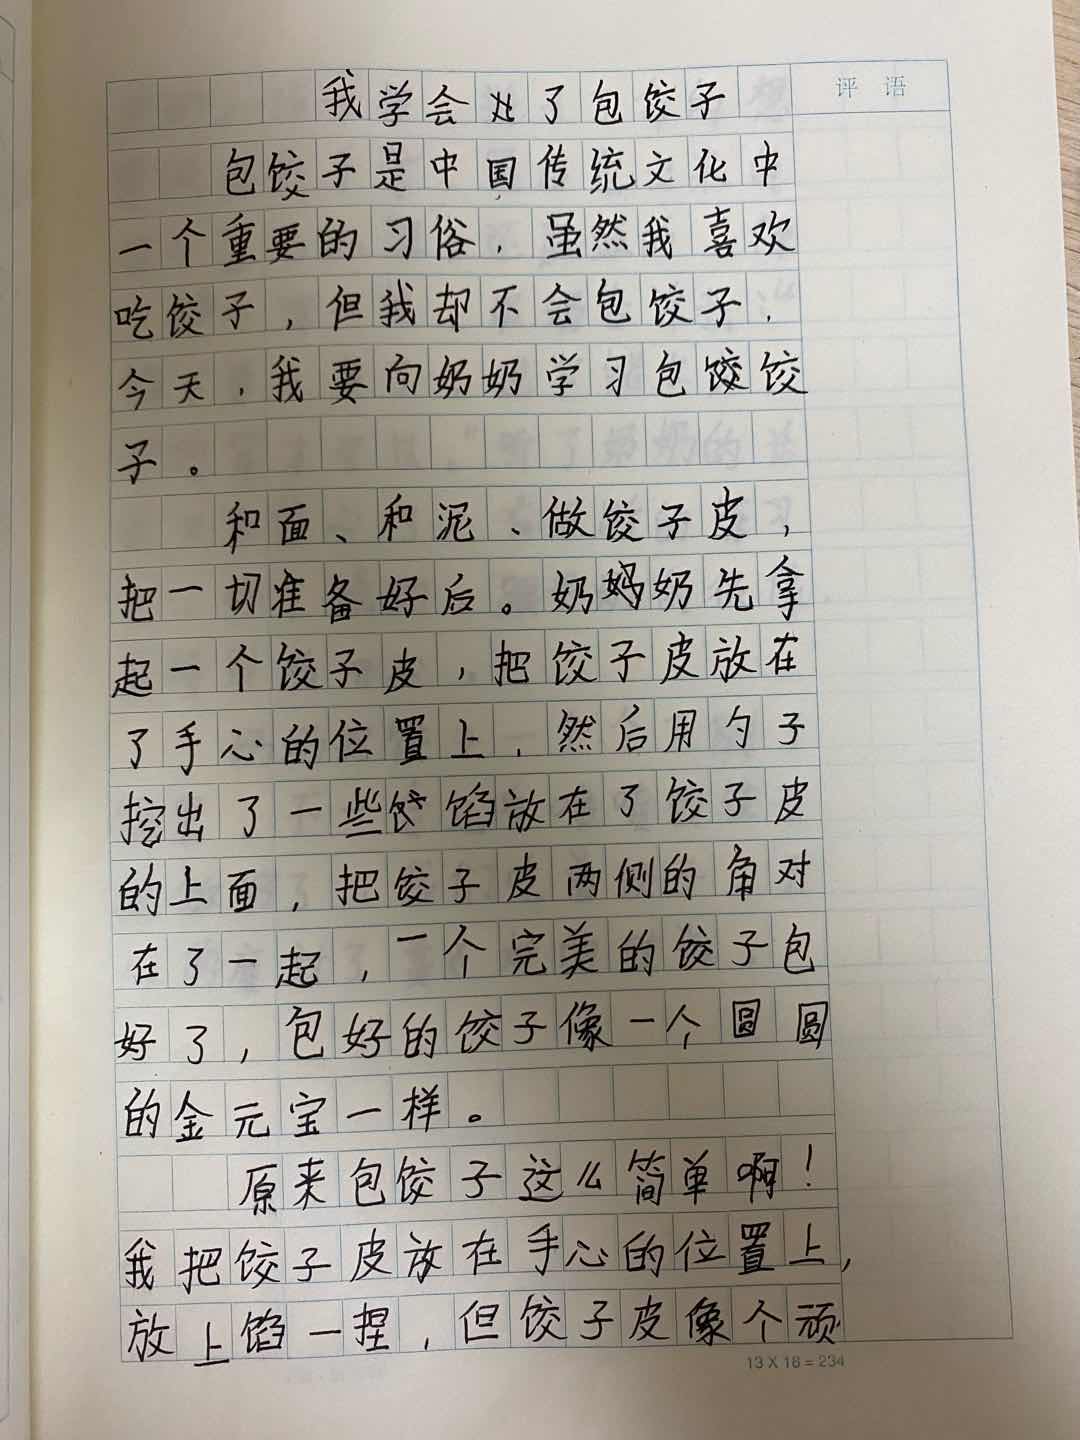 我学会了包饺子
评 语
包饺子是中国传统文化中
一个重要的习俗，虽然我喜欢
吃饺子，但我却不会包饺子，
今天，我要向奶奶学习包饺饺
子。
和面、和泥、做饺子皮，
把一切准备好后。奶妈奶先拿
起一个饺子皮，把饺子皮放在
了手心的位置上，然后用勺子
挖出了一些馅放在了饺子皮
的上面，把饺子皮两侧的角对
在了一起，一个完美的饺子包
好了，包好的饺子像一个圆圆
的金元宝一样。
原来包饺子这么简单啊！
我把饺子皮放在手心的位置上，
放上馅一捏，但饺子皮像个顽
13 X 18 = 234